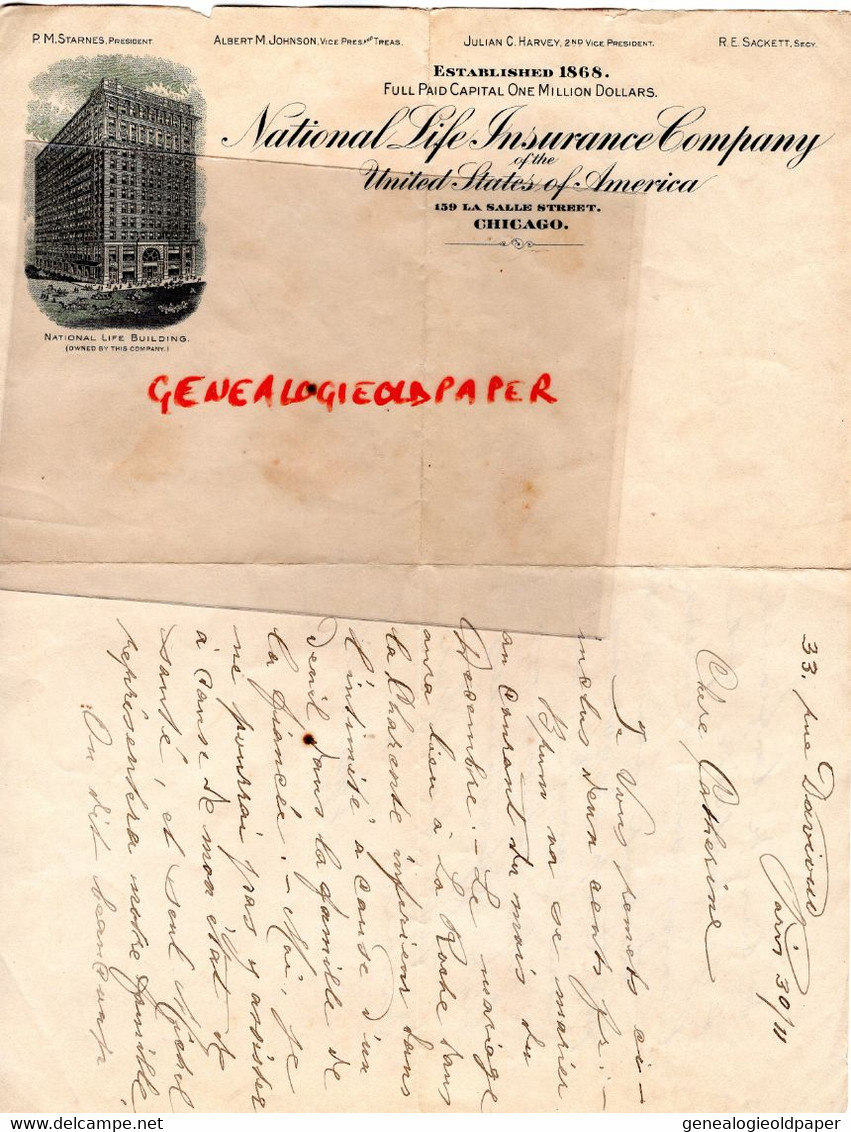 P. M. STARNES, PRESIDENT.
ALBERT M. JOHNSON, VICE PRES. AND TREAS.
JULIAN C. HARVEY, 2ND VICE PRESIDENT.
R. E. SACKETT, SECY.
ESTABLISHED 1868.
FULL PAID CAPITAL ONE MILLION DOLLARS.
National Life Insurance Company
of the
United States of America
159 LA SALLE STREET.
CHICAGO.
NATIONAL LIFE BUILDING.
(OWNED BY THIS COMPANY.)
GENEALOGIEOLDPAPER
33. rue Davioud
Paris 30/11
Chère Catherine
Je vous remets ci-
inclus deux cents fr: -
Brum va se marier
au courant du mois du
Decembre. - Le mariage
aura lieu à La Roche dans
la Charente inferieur dans
l'intimité à cause d'un
deuil dans la famille de
la fiancée. - Moi, je
ne pourrai pas y assister
à cause de mon état de
santé, et seul Michel
représentera notre famille.
On dit beaucoup
genealogieoldpaper